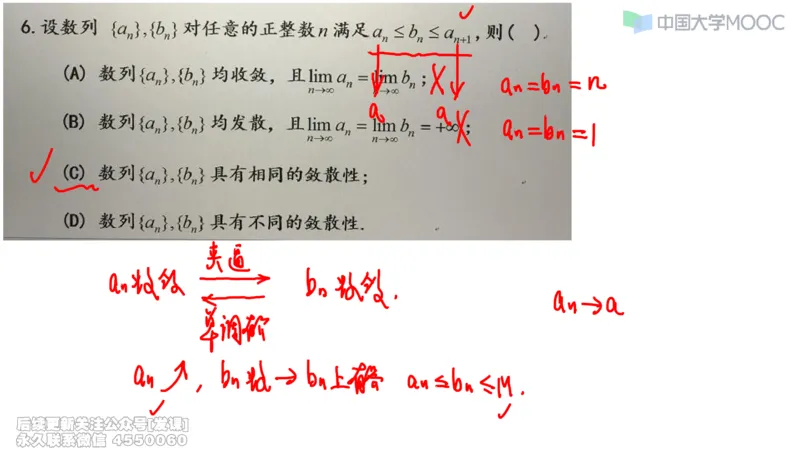 中国大学MOOC
6. 设数列 {aₙ},{bₙ} 对任意的正整数 n 满足 aₙ ≤ bₙ ≤ aₙ₊₁, 则( ).
(A) 数列{aₙ},{bₙ} 均收敛, 且 lim aₙ = lim bₙ ;
n→∞ n→∞
aₙ = bₙ = n
a a
(B) 数列{aₙ},{bₙ} 均发散, 且 lim aₙ = lim bₙ = +∞ ;
n→∞ n→∞
aₙ = bₙ = 1
(C) 数列{aₙ},{bₙ} 具有相同的敛散性;
(D) 数列{aₙ},{bₙ} 具有不同的敛散性.
夹逼
aₙ收敛 bₙ收敛.
aₙ→a
aₙ↗, bₙ收→bₙ上有界 aₙ≤bₙ≤M.
后续更新关注公众号[发课]
永久联系微信 4550060